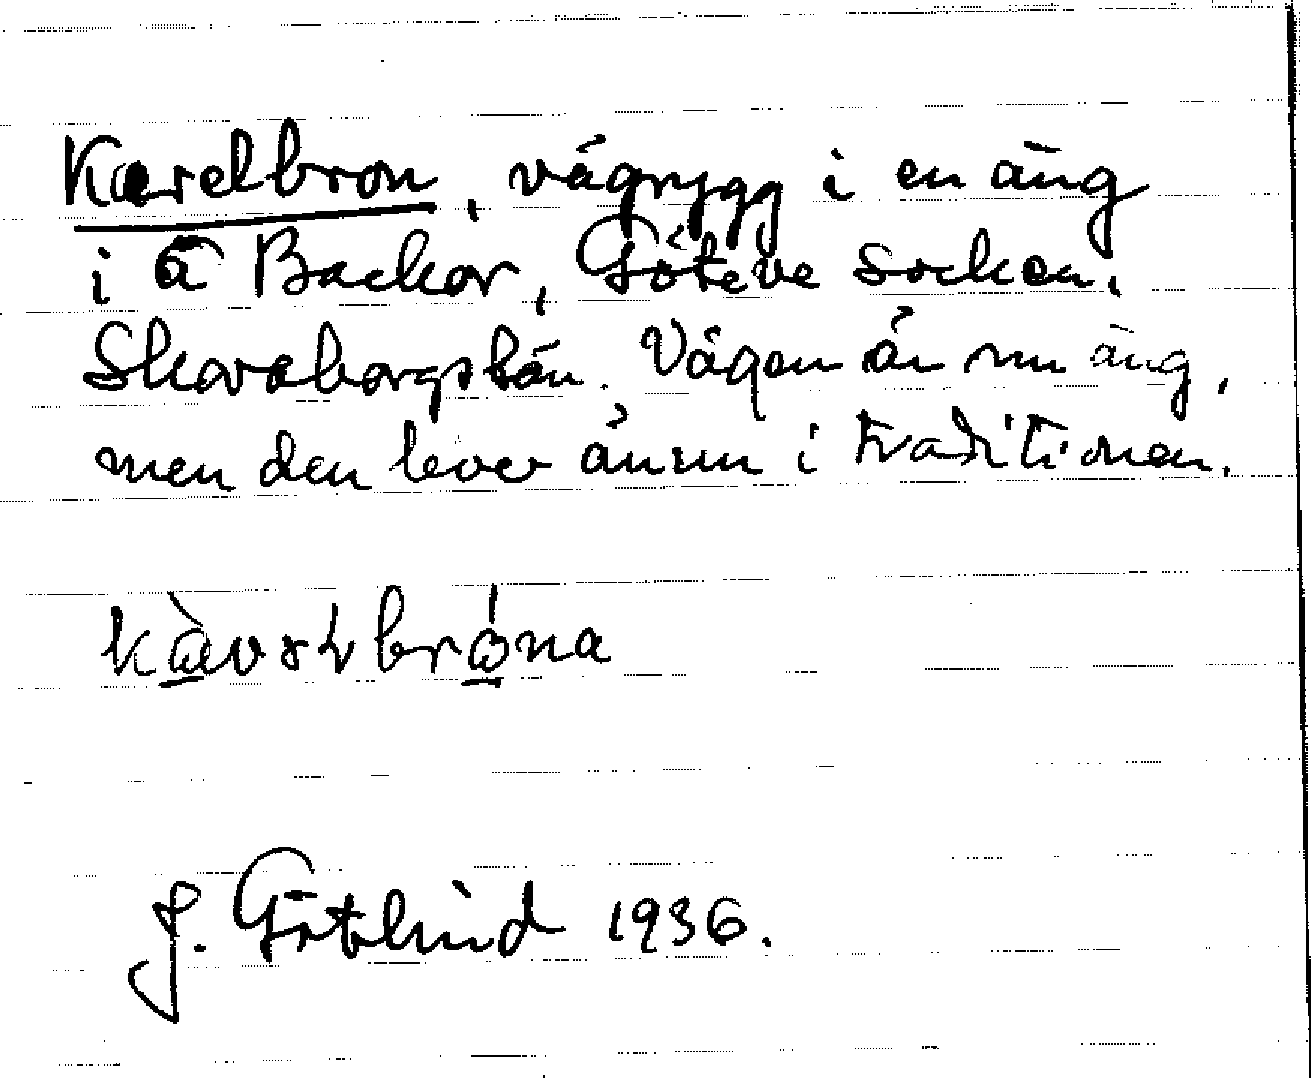 Karelbron, vägrygg i en äng
i Ä Backor, Göteve socken.
Skaraborgs län. Vägen är nu äng,
men den lever ännu i traditionen.
J. Götlind 1936.